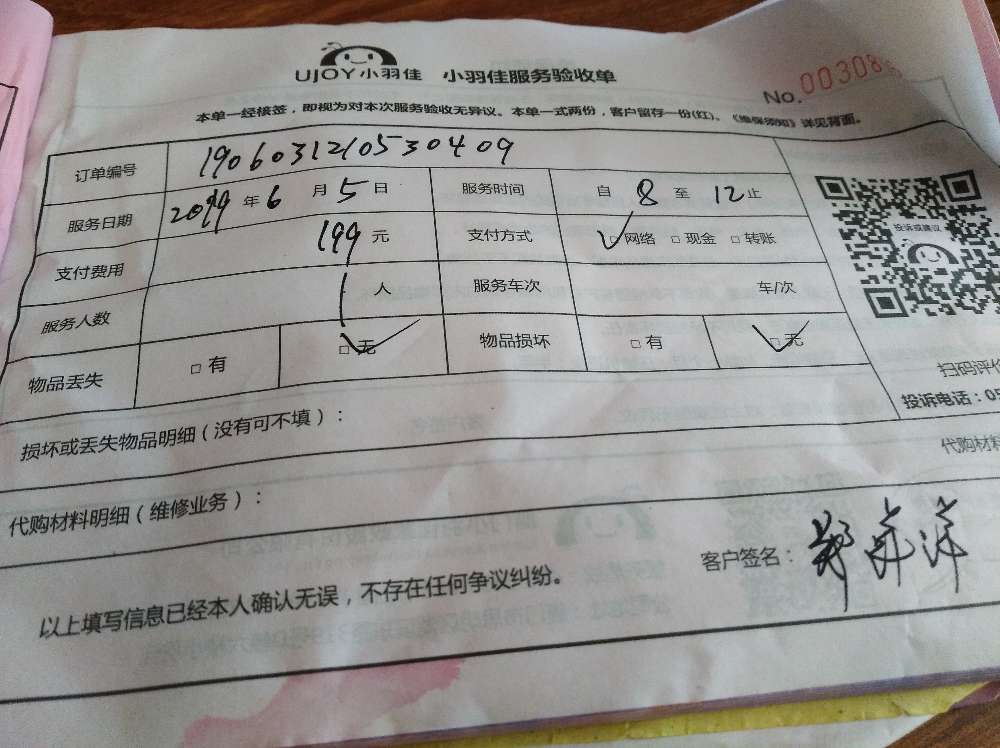 UJOY小羽佳 小羽佳服务验收单
No. 00308
本单一经核签，即视为对本次服务验收无异议。本单一式两份，客户留存一份(红)、《维保须知》详见背面。
订单编号 19060312105304​09
服务日期 2019 年 6 月 5 日 服务时间 自 8 至 12 止
支付费用 199 元 支付方式 ☑网络 □现金 □转账
服务人数 1 人 服务车次 车/次
物品丢失 □有 ☑无 物品损坏 □有 ☑无
投诉或建议
扫码评价
投诉电话：05
损坏或丢失物品明细（没有可不填）：
代购材料
代购材料明细（维修业务）：
以上填写信息已经本人确认无误，不存在任何争议纠纷。
客户签名：郑